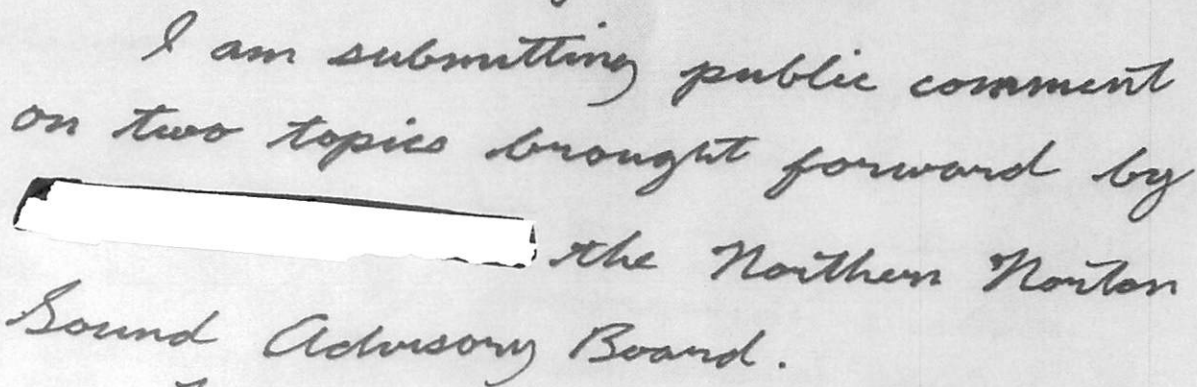 I am submitting public comment
on two topics brought forward by
the Northern Norton
Sound Advisory Board.